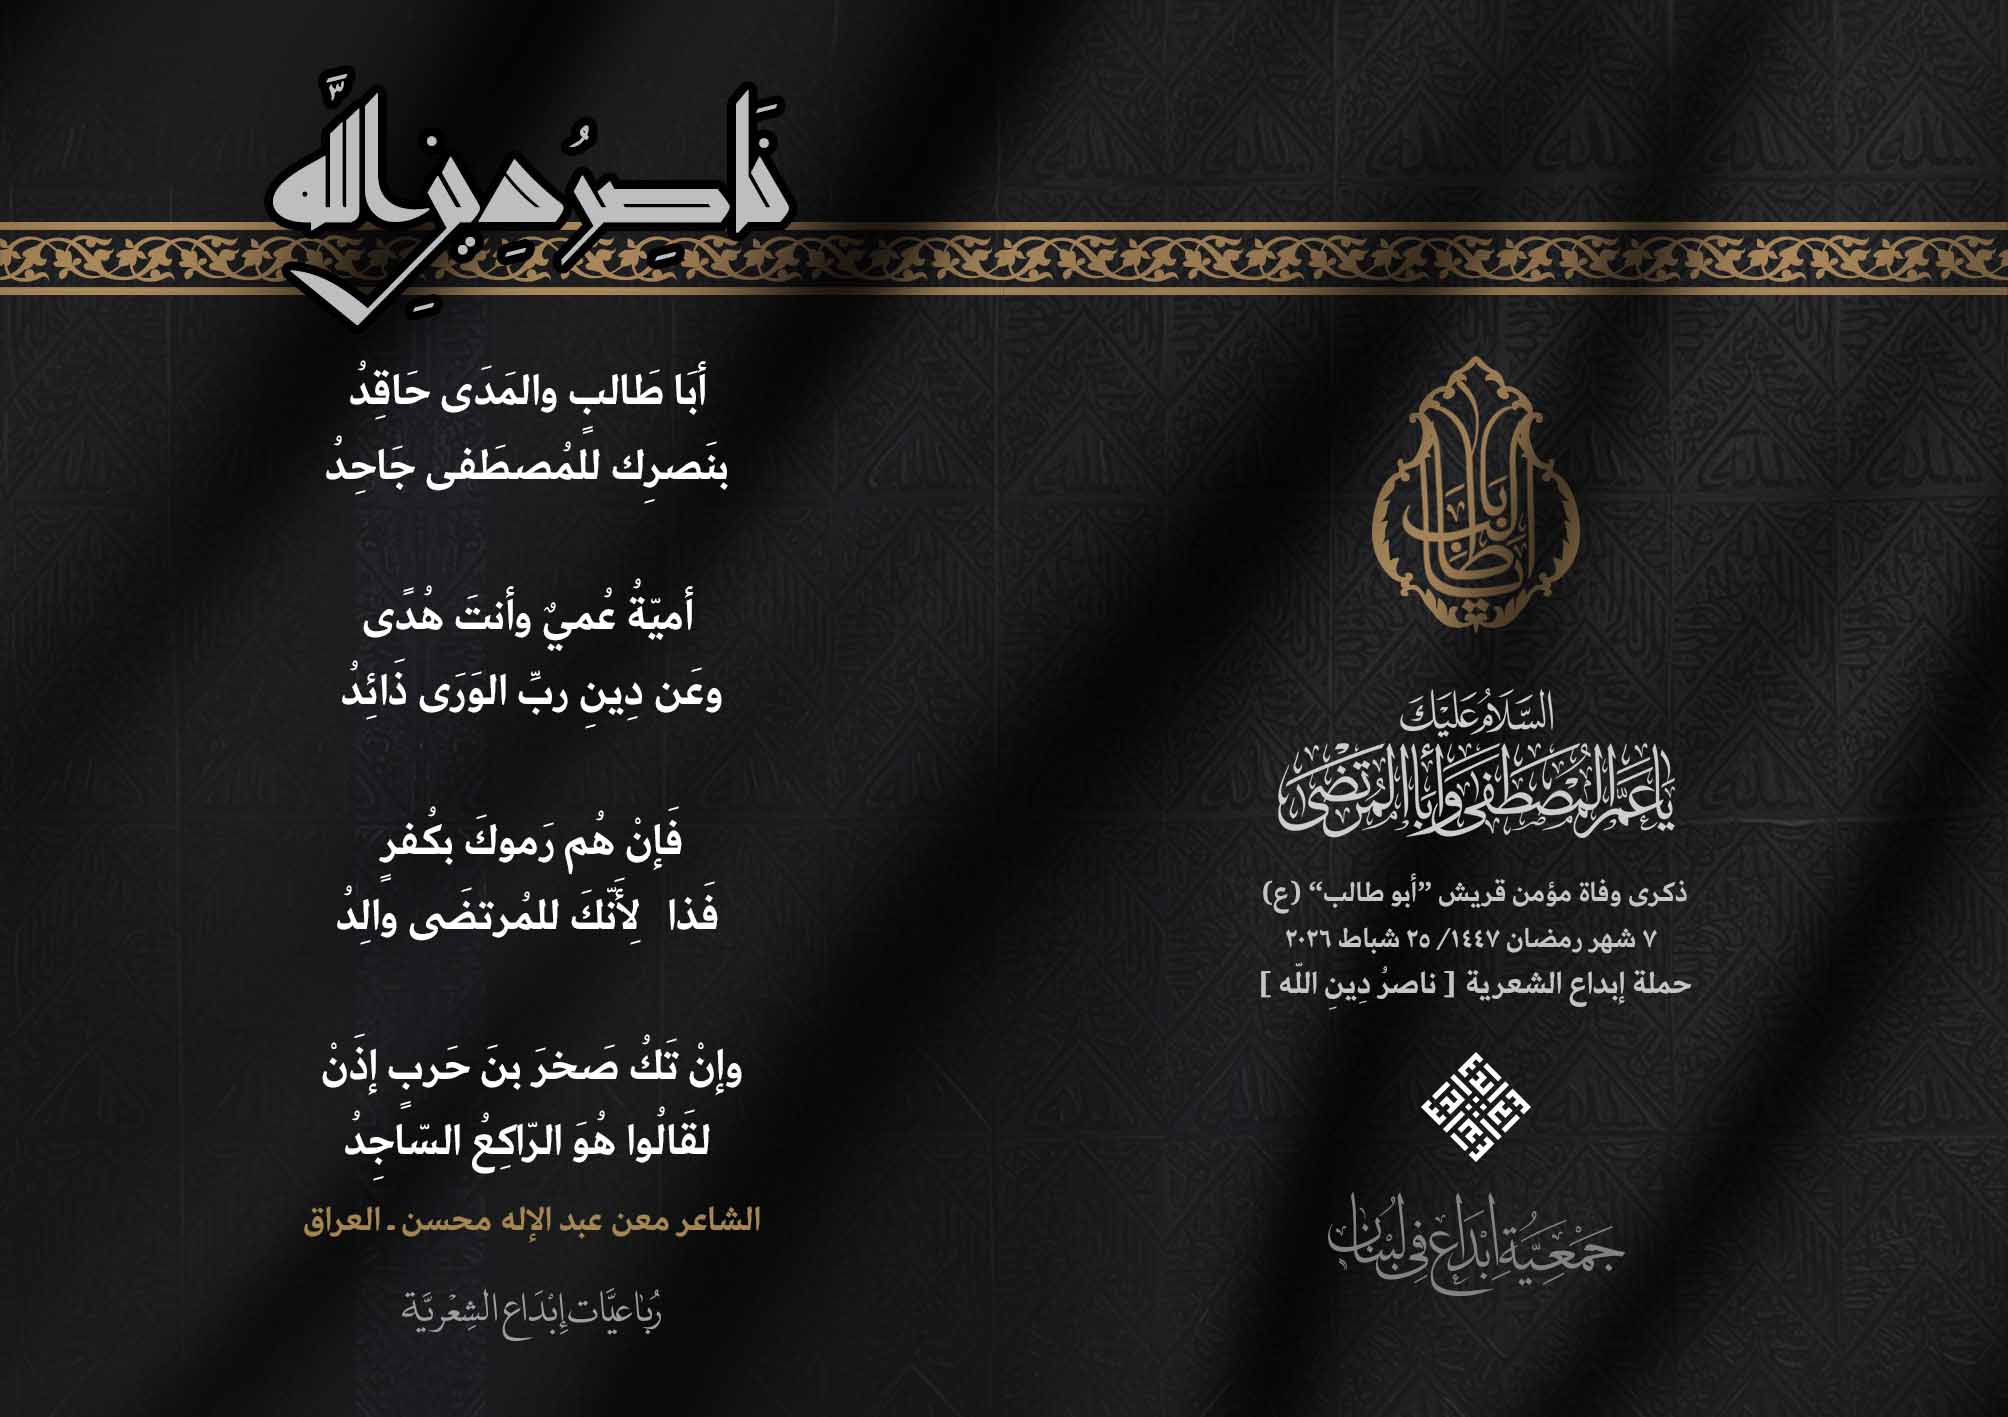 نَاصِرُ دِينِ اللَّه
أبَا طَالبٍ والمَدَى حَاقِدُ
بنَصرِك للمُصطَفى جَاحِدُ
أميّةُ عُميٌ وأنتَ هُدًى
وعَن دِينِ ربِّ الوَرَى ذَائِدُ
فَإنْ هُم رَموكَ بكُفرٍ
فَذا لِأَنّكَ للمُرتضَى والِدُ
وإنْ تَكُ صَخرَ بنَ حَربٍ إذَنْ
لقَالُوا هُوَ الرّاكِعُ السّاجِدُ
الشاعر معن عبد الإله محسن ـ العراق
رُبَاعيَّات إِبْدَاع الشِعْريَّة
يَا أبَا طَالِب
السَّلَامُ عَلَيْكَ
يَا عَمَّ المُصْطَفَى وَأَبَا المُرْتَضَى
ذكرى وفاة مؤمن قريش ”أبو طالب“ (ع)
٧ شهر رمضان ١٤٤٧/ ٢٥ شباط ٢٠٢٦
حملة إبداع الشعرية [ ناصرُ دِينِ اللّه ]
جَمْعِيَّةِ إبْدَاع فِي لُبْنَان